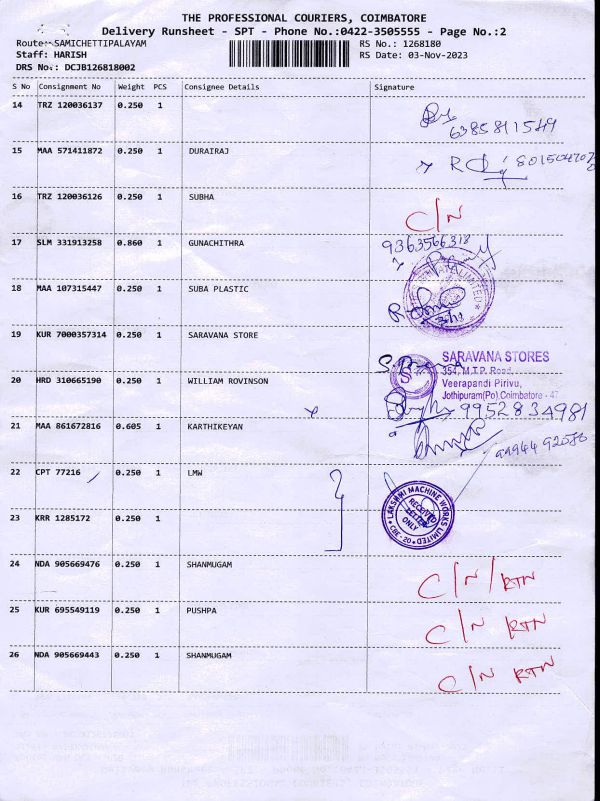 THE PROFESSIONAL COURIERS, COIMBATORE
Delivery Runsheet - SPT - Phone No.:0422-3505555 - Page No.:2
Route: SAMICHETTIPALAYAM
RS No.: 1268180
Staff: HARISH
RS Date: 03-Nov-2023
DRS No.: DCJB126818002
S No Consignment No Weight PCS Consignee Details Signature
14 TRZ 120036137 0.250 1
6385811549
15 MAA 571411872 0.250 1 DURAIRAJ
16 TRZ 120036126 0.250 1 SUBHA
C/N
17 SLM 331913258 0.860 1 GUNACHITHRA
9363566318
18 MAA 107315447 0.250 1 SUBA PLASTIC
19 KUR 7000357314 0.250 1 SARAVANA STORE
SARAVANA STORES
354, M.T.P. Road,
20 HRD 310665190 0.250 1 WILLIAM ROVINSON
Veerapandi Pirivu,
Jothipuram(Po),Coimbatore - 47
9952834981
21 MAA 861672816 0.605 1 KARTHIKEYAN
22 CPT 77216 0.250 1 LMW
LAKSHMI MACHINE WORKS LIMITED
RECEIVED
LETTER
ONLY
CBE-20
23 KRR 1285172 0.250 1
24 NDA 905669476 0.250 1 SHANMUGAM
C/N/RTN
25 KUR 695549119 0.250 1 PUSHPA
C/N RTN
26 NDA 905669443 0.250 1 SHANMUGAM
C/N RTN